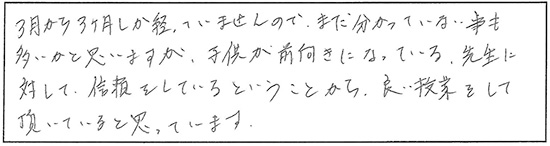 3月から3ヶ月しか経っていませんので、まだ分かっていない事も
多いかと思いますが、子供が前向きになっている、先生に
対して、信頼をしているということから、良い授業をして
頂いていると思っています。